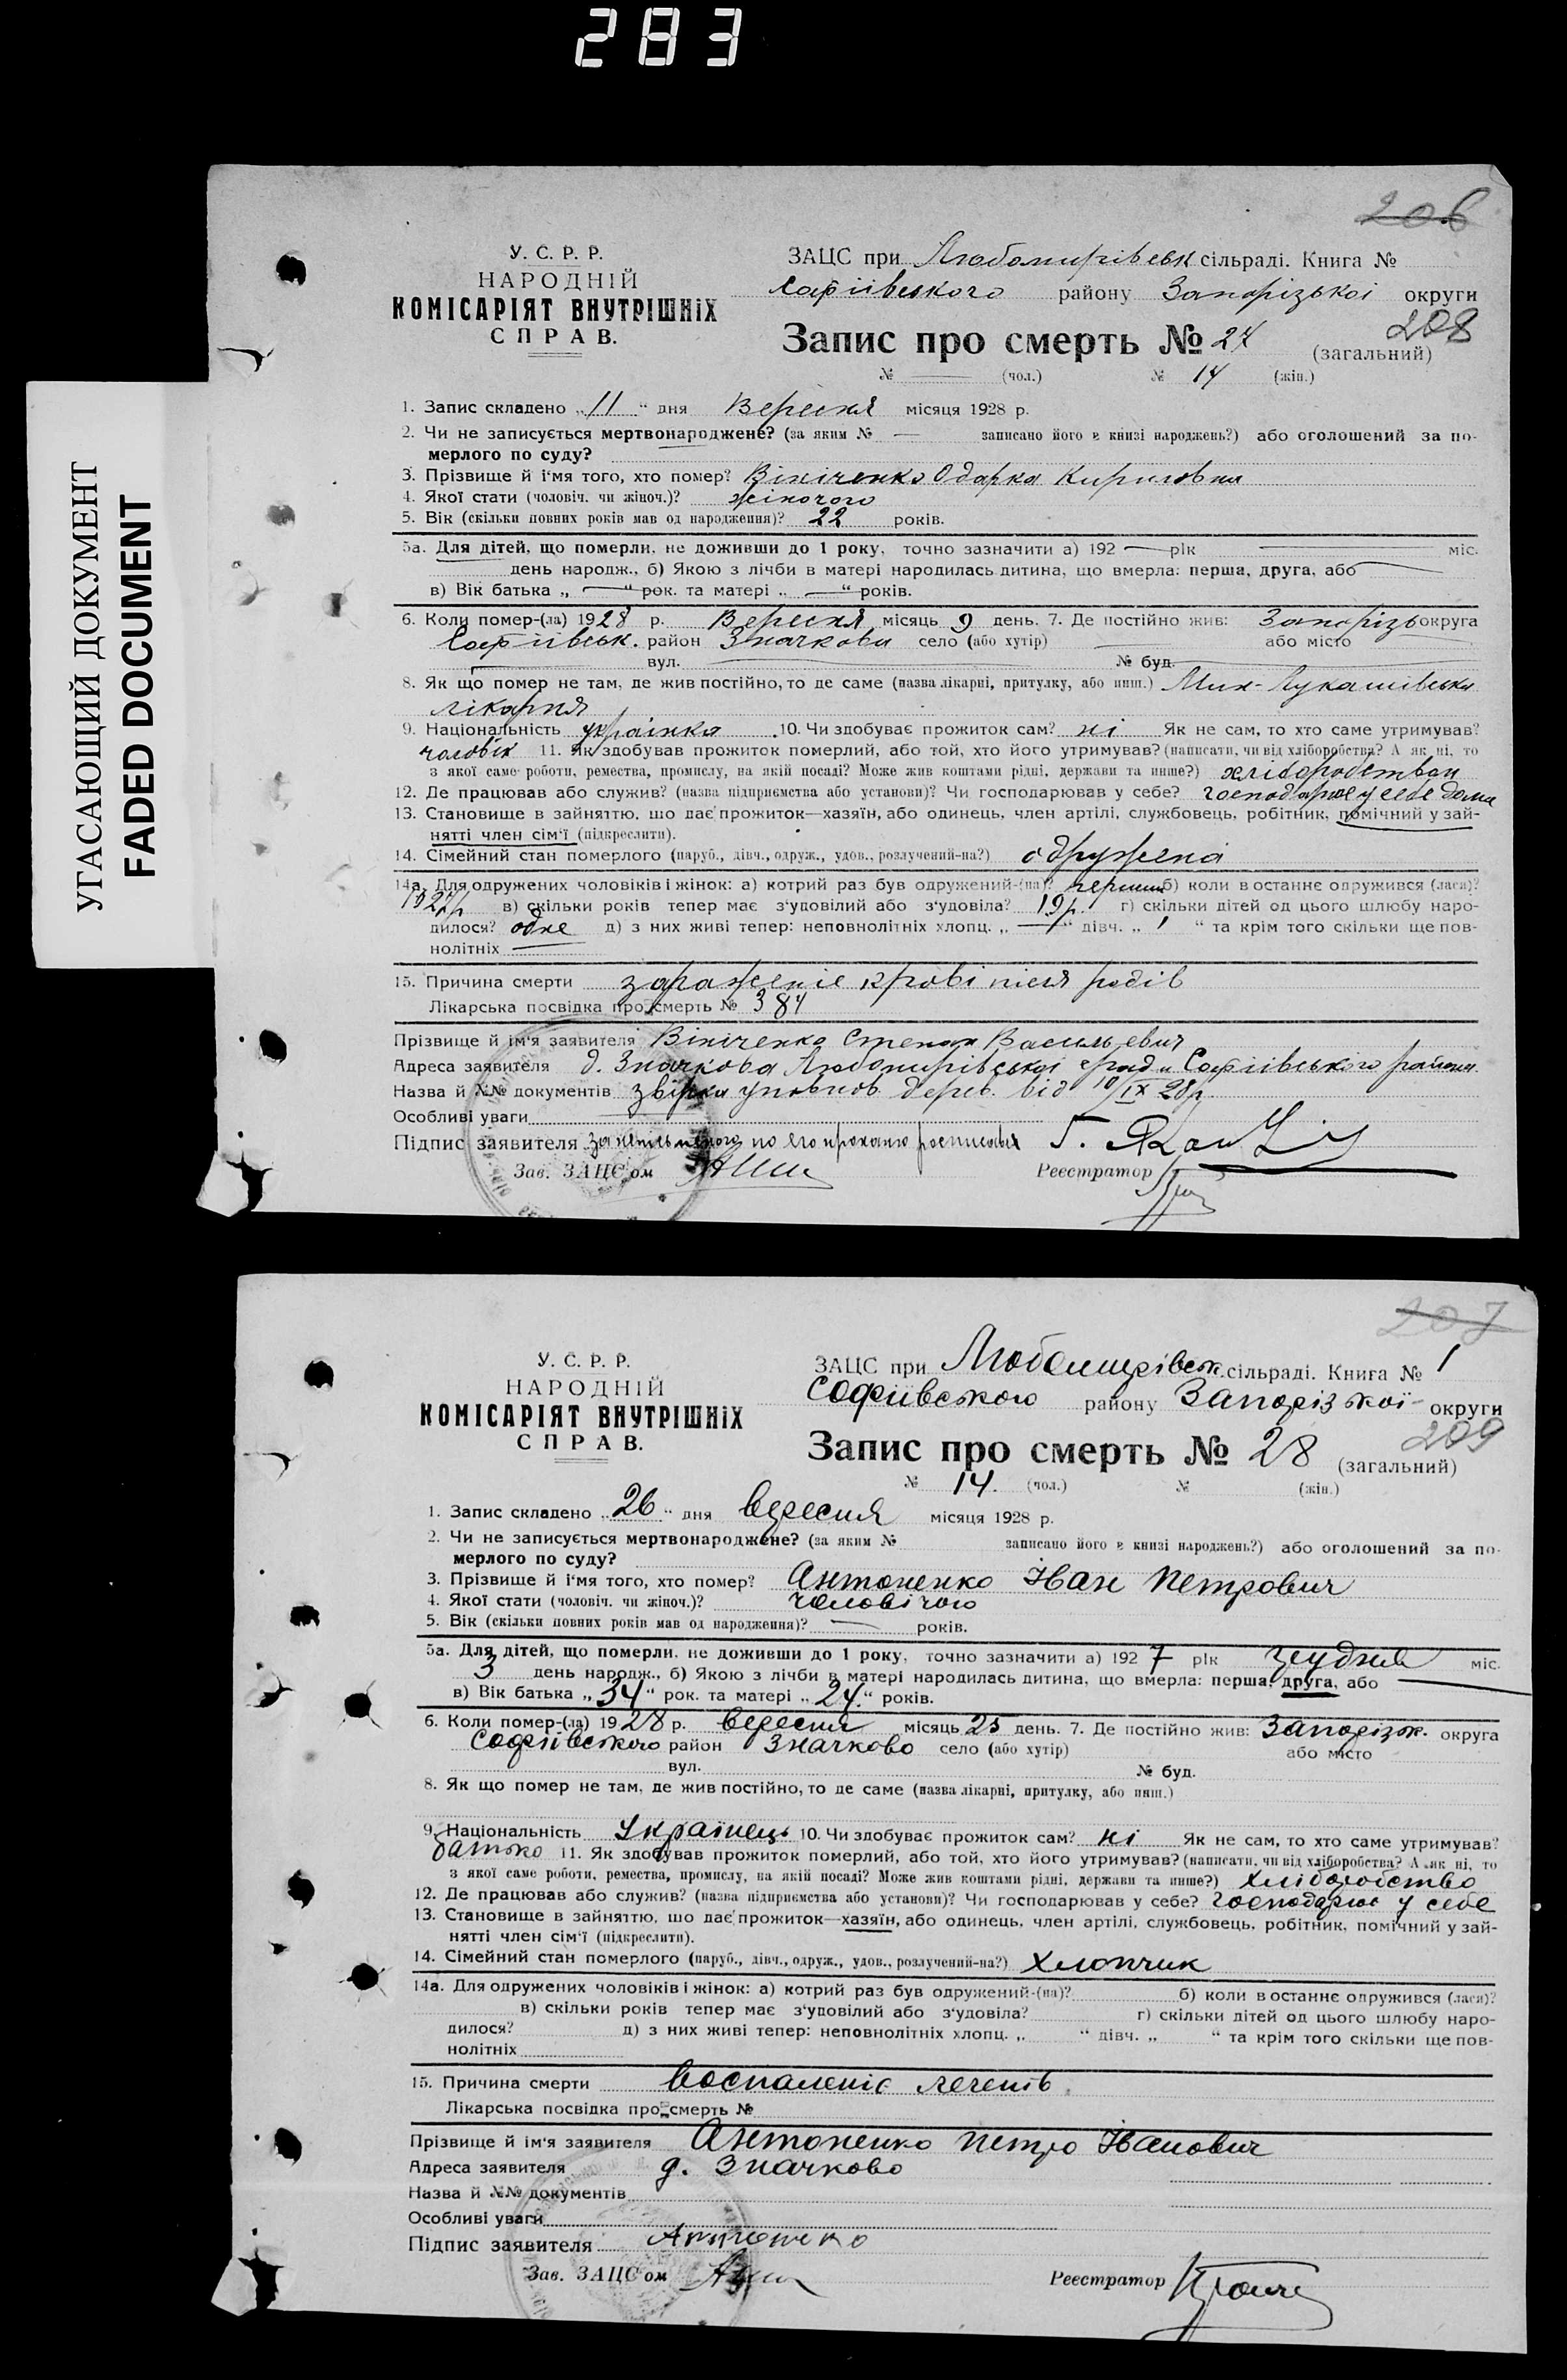 283
УГАСАЮЩИЙ ДОКУМЕНТ
FADED DOCUMENT
206
У. С. Р. Р.
НАРОДНІЙ
КОМІСАРІЯТ ВНУТРІШНІХ
СПРАВ.
ЗАЦС при Любомирівськ сільраді. Книга №
Софіївського району Запорізької округи
208
Запис про смерть № 27 (загальний)
№ — (чол.) № 14 (жін.)
1. Запис складено „11“ дня Вересня місяця 1928 р.
2. Чи не записується мертвонароджене? (за яким № — записано його в книзі народжень?) або оголошений за по-
мерлого по суду?
3. Прізвище й і'мя того, хто помер? Вініченко Одарка Кириловна
4. Якої стати (чоловіч. чи жіноч.)? жіночого
5. Вік (скільки повних років мав од народження)? 22 років.
5а. Для дітей, що померли, не доживши до 1 року, точно зазначити а) 192 — рік — міс.
день народж., б) Якою з лічби в матері народилась дитина, що вмерла: перша, друга, або —
в) Вік батька „ — “ рок. та матері „ — “ років.
6. Коли помер-(ла) 1928 р. Вересня місяць 9 день. 7. Де постійно жив: Запорізь округа
Софіївськ. район Значкова село (або хутір) — або місто —
вул. — № буд. —
8. Як що помер не там, де жив постійно, то де саме (назва лікарні, притулку, або инш.) Мих-Лукашівська
лікарня
9. Національність українка 10. Чи здобуває прожиток сам? ні Як не сам, то хто саме утримував?
чоловік 11. Як здобував прожиток померлий, або той, хто його утримував? (написати, чи від хліборобства? А як ні, то
з якої саме роботи, ремества, промислу, на якій посаді? Може жив коштами рідні, держави та инше?) хліборобством
12. Де працював або служив? (назва підприємства або установи)? Чи господарював у себе? господарює у себе дома
13. Становище в зайняттю, що дає прожиток—хазяїн, або одинець, член артілі, службовець, робітник, помічний у зай-
нятті член сім'ї (підкреслити).
14. Сімейний стан померлого (паруб., дівч., одруж., удов., розлучений-на?) одружена
14а. Для одружених чоловіків і жінок: а) котрий раз був одружений-(на)? перший б) коли востаннє одружився (лася)?
1927 р в) скільки років тепер має з'удовілий або з'удовіла? 19 р. г) скільки дітей од цього шлюбу наро-
дилося? одне д) з них живі тепер: неповнолітніх хлопц. „ — “ дівч. „ 1 “ та крім того скільки ще пов-
нолітніх —
15. Причина смерти зараженіє крові після родів
Лікарська посвідка про смерть № 384
Прізвище й ім'я заявителя Вініченко Степан Васильевич
Адреса заявителя д. Значкова Любомирівської с/ради Софіївського района
Назва й №№ документів звірка уповнов. дерев. від 10/IX 28 р.
Особливі уваги
Підпис заявителя за по его росписався
Зав. ЗАЦС'ом Реєстратор
207
У. С. Р. Р.
НАРОДНІЙ
КОМІСАРІЯТ ВНУТРІШНІХ
СПРАВ.
ЗАЦС при Любомирівськ. сільраді. Книга № 1
Софіївського району Запорізької округи
209
Запис про смерть № 28 (загальний)
№ 14. (чол.) № (жін.)
1. Запис складено „26“ дня вересня місяця 1928 р.
2. Чи не записується мертвонароджене? (за яким № записано його в книзі народжень?) або оголошений за по-
мерлого по суду?
3. Прізвище й і'мя того, хто помер? Антоненко Іван Петрович
4. Якої стати (чоловіч. чи жіноч.)? чоловічого
5. Вік (скільки повних років мав од народження)? — років.
5а. Для дітей, що померли, не доживши до 1 року, точно зазначити а) 1927 рік грудня міс.
3 день народж., б) Якою з лічби в матері народилась дитина, що вмерла: перша, друга, або —
в) Вік батька „34“ рок. та матері „24.“ років.
6. Коли помер-(ла) 1928 р. вересня місяць 25 день. 7. Де постійно жив: Запорізьк. округа
Софіївського район Значково село (або хутір) або місто
вул. № буд.
8. Як що помер не там, де жив постійно, то де саме (назва лікарні, притулку, або инш.)
9. Національність Українець 10. Чи здобуває прожиток сам? ні Як не сам, то хто саме утримував?
батько 11. Як здобував прожиток померлий, або той, хто його утримував? (написати, чи від хліборобства? А як ні, то
з якої саме роботи, ремества, промислу, на якій посаді? Може жив коштами рідні, держави та инше?) хліборобство
12. Де працював або служив? (назва підприємства або установи)? Чи господарював у себе? господарює у себе
13. Становище в зайняттю, що дає прожиток—хазяїн, або одинець, член артілі, службовець, робітник, помічний у зай-
нятті член сім'ї (підкреслити).
14. Сімейний стан померлого (паруб., дівч., одруж., удов., розлучений-на?) хлопчик
14а. Для одружених чоловіків і жінок: а) котрий раз був одружений-(на)? б) коли востаннє одружився (лася)?
в) скільки років тепер має з'удовілий або з'удовіла? г) скільки дітей од цього шлюбу наро-
дилося? д) з них живі тепер: неповнолітніх хлопц. „ “ дівч. „ “ та крім того скільки ще пов-
нолітніх
15. Причина смерти воспаленіє легенів
Лікарська посвідка про смерть №
Прізвище й ім'я заявителя Антоненко Петро Іванович
Адреса заявителя д. Значково
Назва й №№ документів
Особливі уваги
Підпис заявителя Антоненко
Зав. ЗАЦС'ом Реєстратор